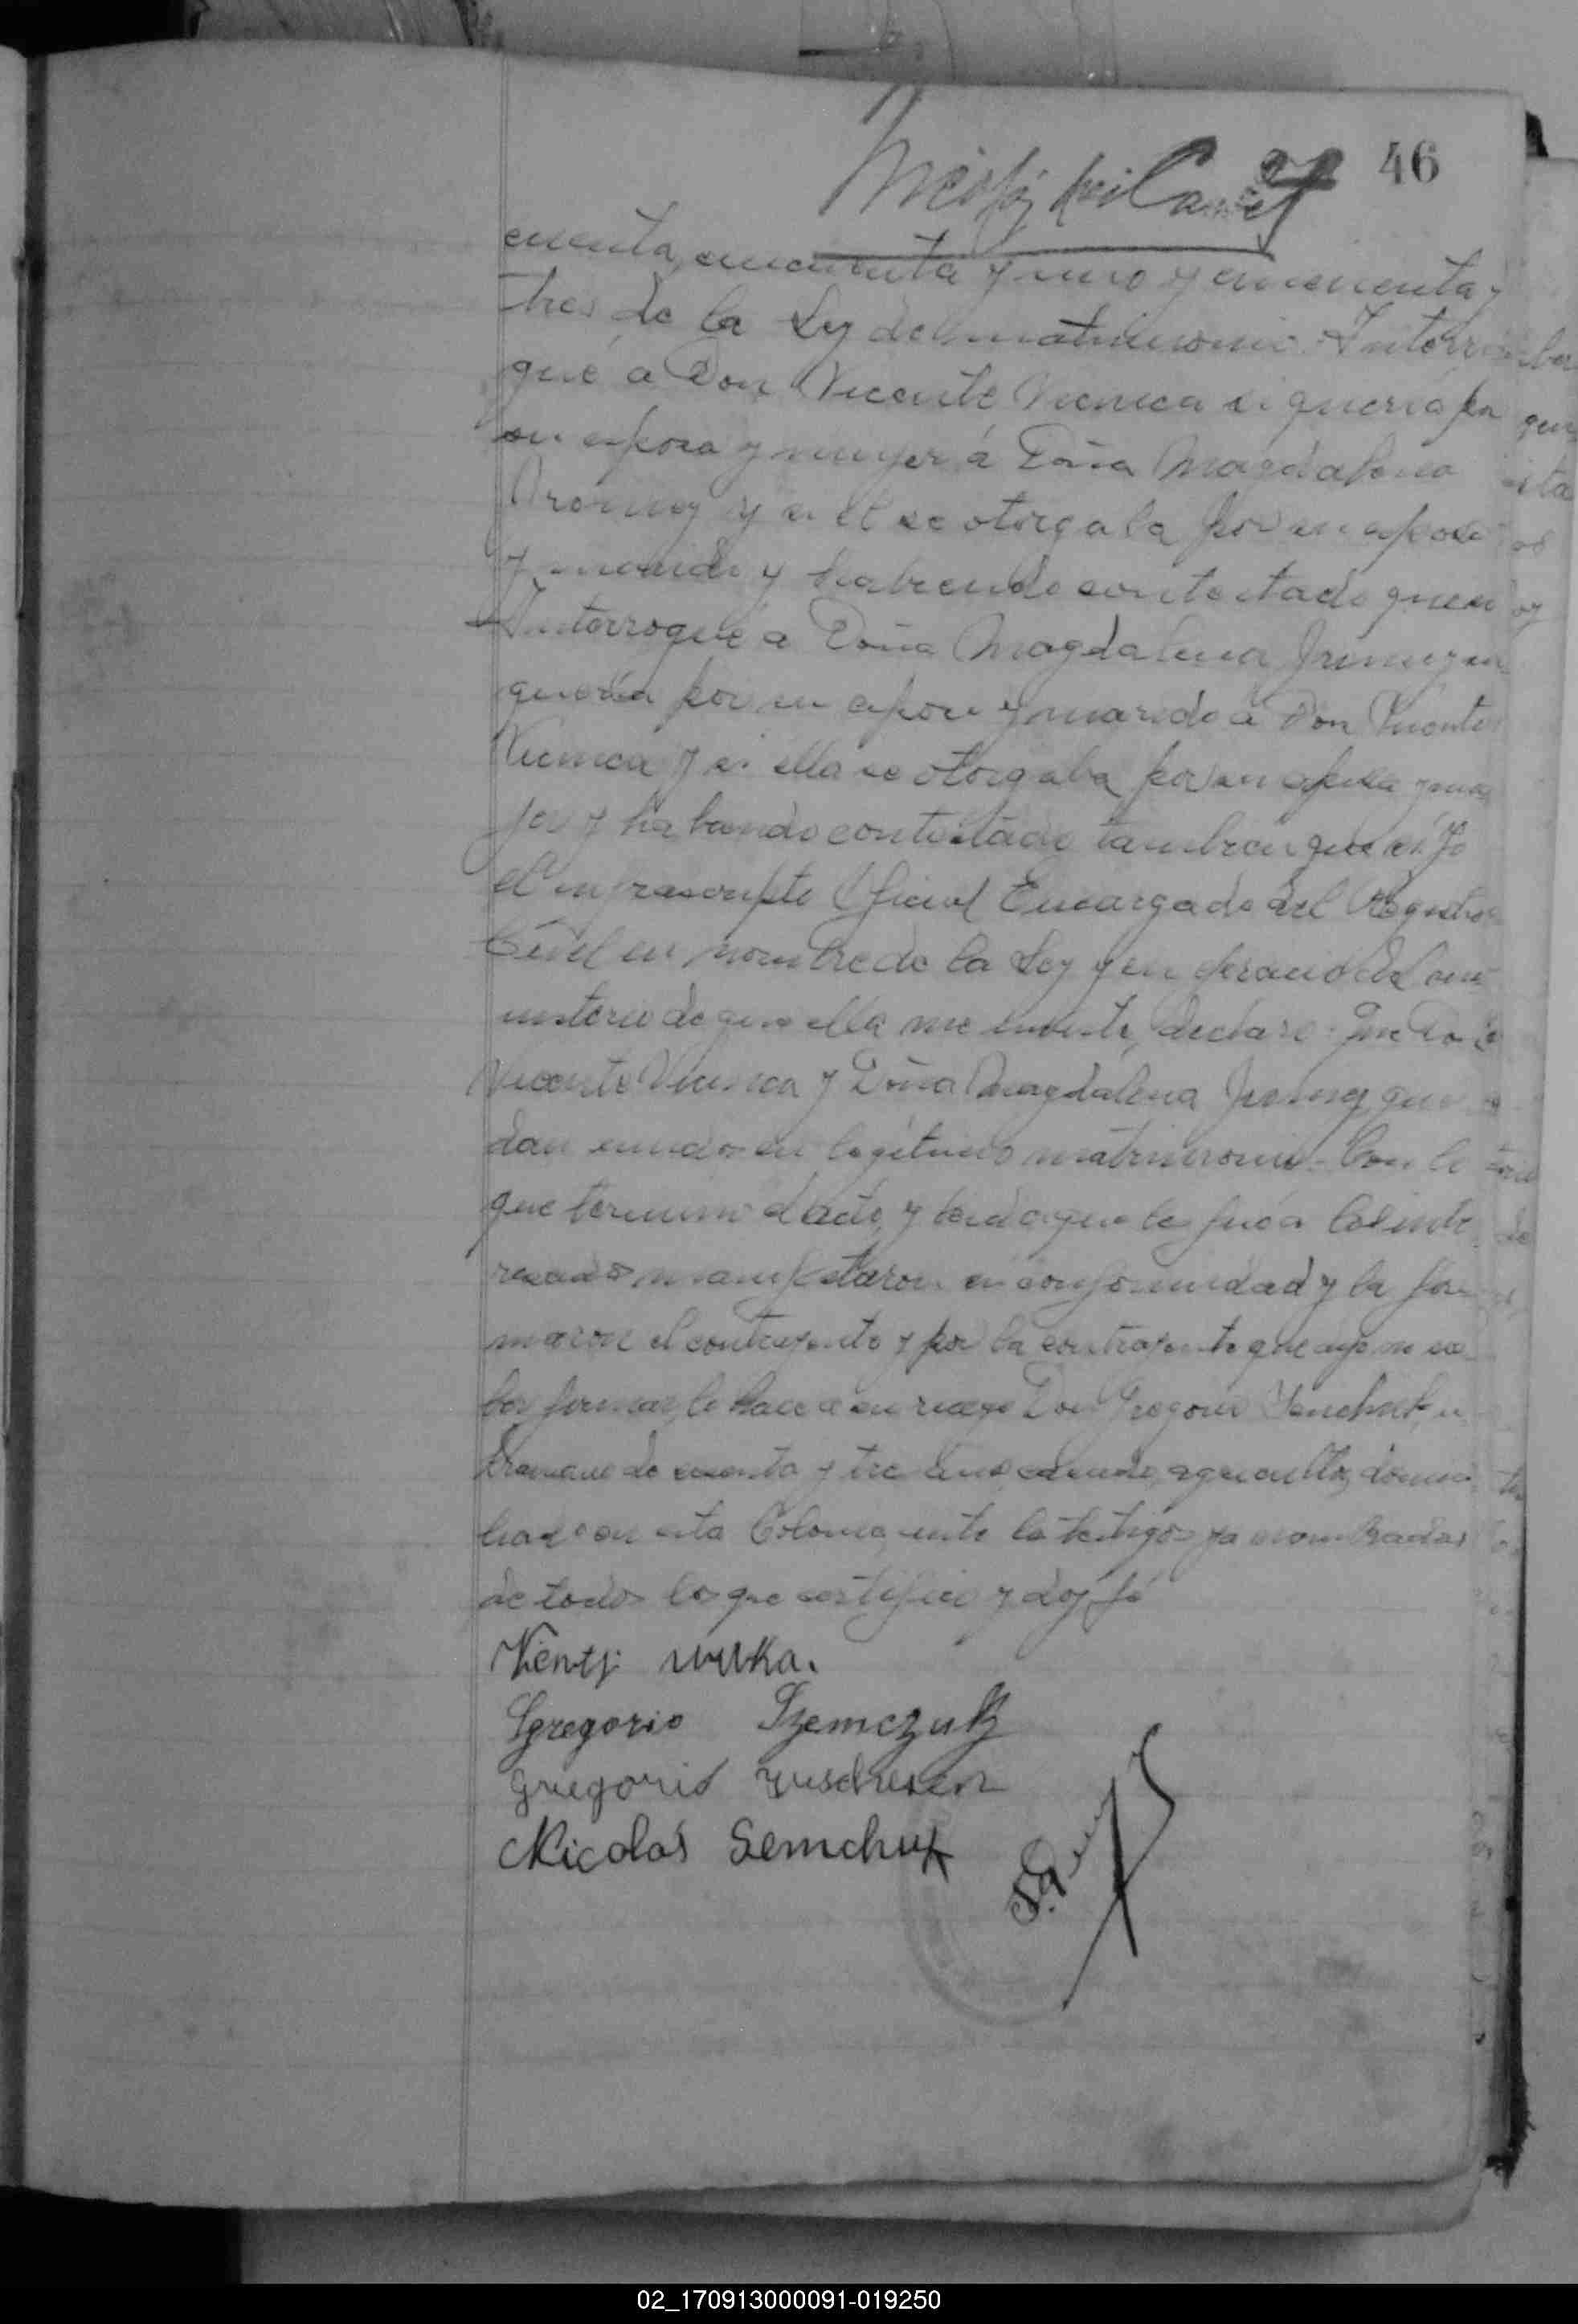 46
cuenta, cincuenta y uno y cincuenta y
tres de la Ley del matrimonio. Interro
gué a Don Vicente si queria por
su esposa y mujer á Doña Magdalena
y si él se otorgaba por su esposo
y marido y habiendo contestado que si
Interrogué a Doña Magdalena si
queria por su esposo y marido a Don Vicente
y si ella se otorgaba por su esposa y mu
jer y habiendo contestado tambien que sí Yo
el infrascripto Oficial Encargado del Registro
Civil en nombre de la Ley y en ejercicio del mi
nisterio de que ella me inviste, declaro: Que Don
Vicente y Doña Magdalena que
dan unidos en legítimo matrimonio. Con lo
que termino el acto, y leida que les fué a los inte
resados manifestaron su conformidad y la fir
maron el contrayente y por la contrayente que dijo no sa
ber firmar, lo hace a su ruego Don Gregorio
de y tres años, agricultor, domici
liado en esta Colonia, ante los testigos ya nombrados
de todos lo que certifico y doy fé
Gregorio Szemczuk
Gregorio
Nicolás Semchuk
02_170913000091-019250